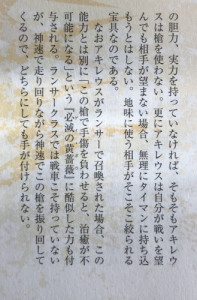 の胆力、実力を持っていなければ、そもそもアキレウ
スは槍を使わない。更にアキレウスは自分が戦いを望
んでも相手が望まない場合、無理にタイマンに持ち込
もうとはしない。地味に使う相手がそこそこ絞られる
宝具なのである。
なおアキレウスがランサーで召喚された場合、この
能力とは別に「この槍で手傷を負わせると、治癒が不
可能になる」という『必滅の黄薔薇』に酷似した力も付
与される。ランサークラスでは戦車こそ持っていない
が、神速で走り回りながら神速でこの槍を振り回して
くるので、どちらにしても手が付けられない